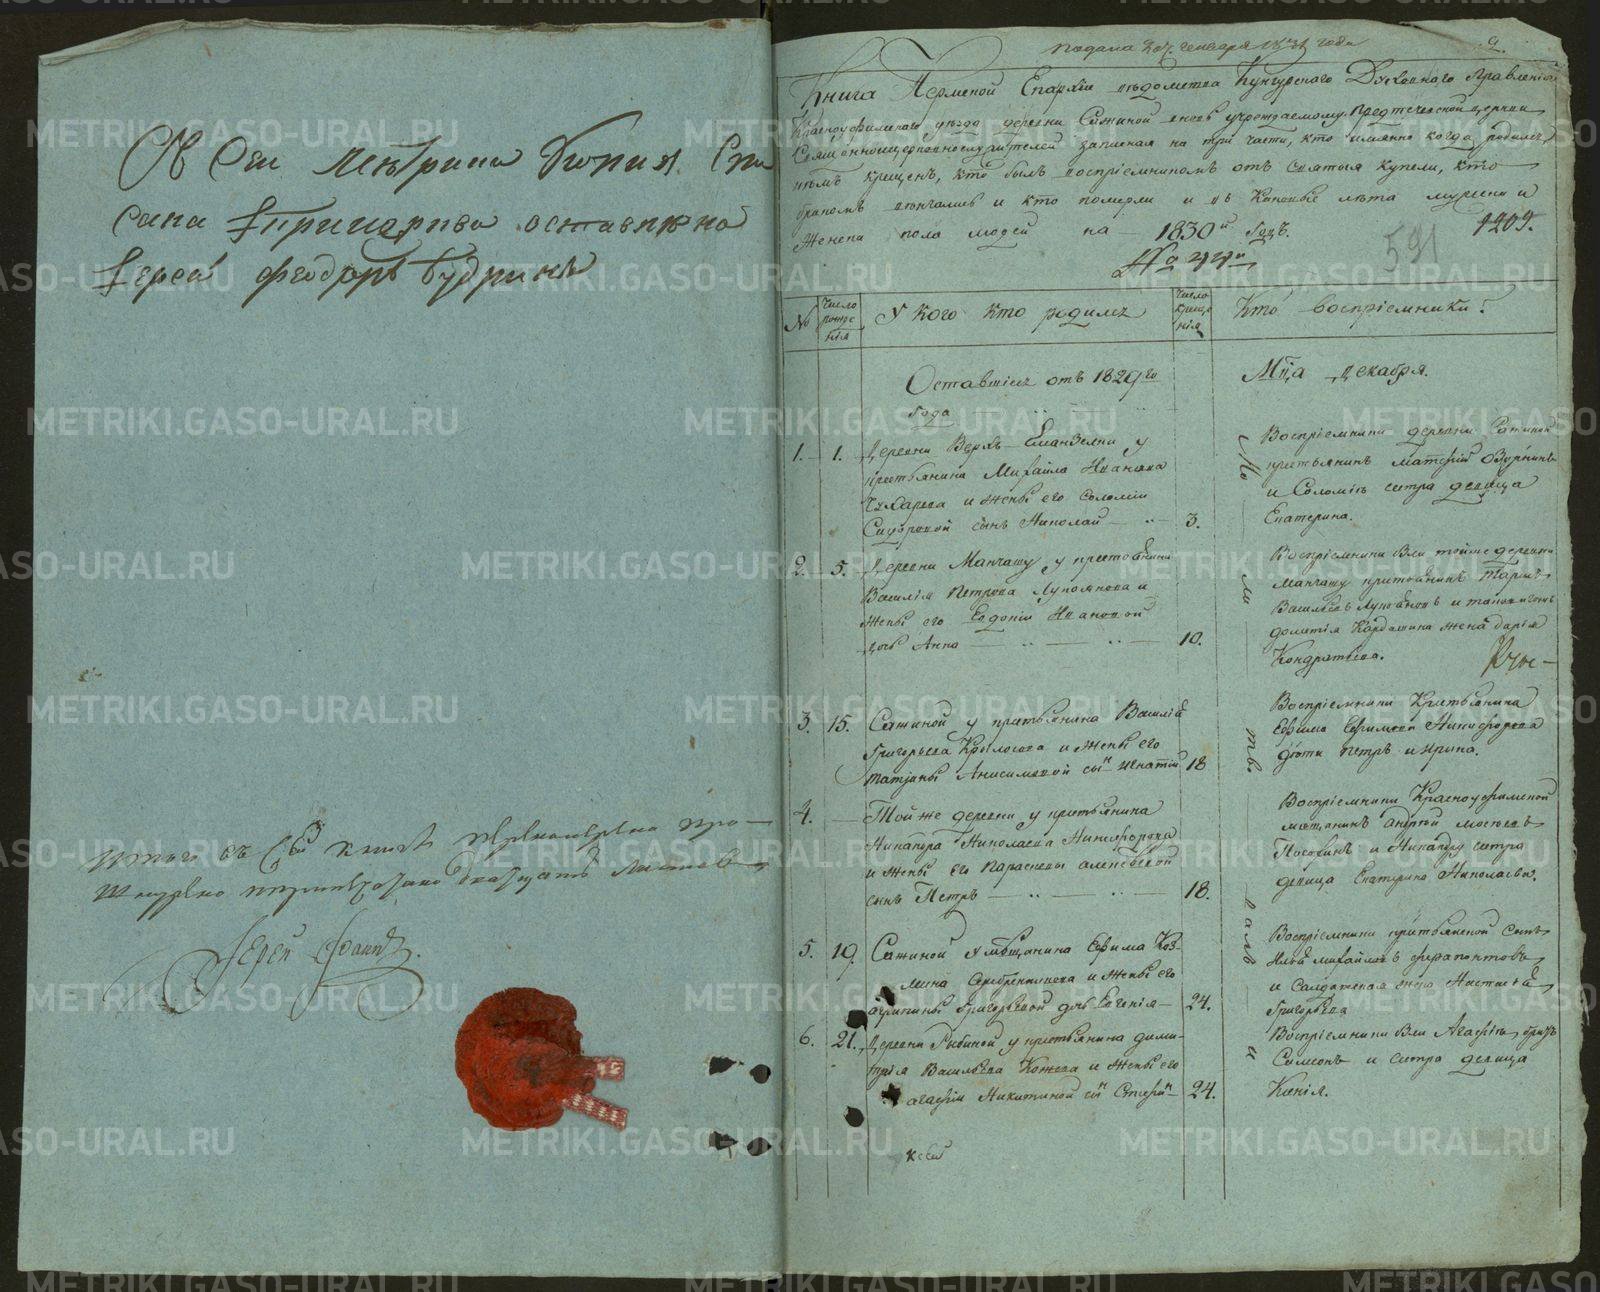 Съ сей метрики копия спи
сана и примерива оставлена
Иерей Феодоръ Будринъ
Итого въ сей книге нумерованныхъ про-
шнурено припечатано двадцать листовъ
Иерей Иоаннъ
Подана 20. генваря 1831 года
2.
Книга Пермской Епархіи ведомства Кунгурского Духовного Правленія
Красноуфимского уезда деревни Сажиной вновь учреждаемому Предтеческой церкви
Священноцерковнослужителей записная на три части, кто именно когда родился,
кемъ крещенъ, кто былъ воспріемникомъ отъ святыя купели, кто
бракомъ венчались и кто померли и въ каковые лета мужеска и
женска пола людей на 1830й годъ. 1209.
591
№ 44й
№ Число рождения У кого кто родился Число крещенія Кто воспріемники?
Оставшіеся отъ 1829го года
Мца декабря.
1. 1. Деревни Верхъ-Еманзелги у
крестьянина Михайла Иванова
Чухарева и жены его Соломіи
Сидоровой сынъ Николай 3.
Воспріемники деревни Сажиной
крестьянинъ Матфій Озорнинъ
и Соломіи сестра девица
Екатерина.
2. 5. Деревни Манчажу у крестьянина
Василія Петрова Лукоянова и
жены его Евдокіи Ивановой
дочь Анна 10.
Воспріемники были той же деревни
Манчажу крестьянинъ Тарасъ
Васильевъ Лукояновъ и
Дометія Кардашина жена Дарія
Кондратьева.
3. 15. Сажиной у крестьянина Василія
Григорьева Крылосова и жены его
Татьяны Анисимовой сынъ Игнатій 18
Воспріемники Крестьянина
Ефима Ефимова Никифорова
дети Петръ и Ирина.
4. Той же деревни у крестьянина
Никандра Николаева Никифорова
и жены его Парасковьи Алексеевой
сынъ Петръ 18.
Воспріемники Красноуфимской
мещанинъ Андрей Мосеевъ
и Никандру сестра
девица Екатерина Николаева.
5. 19. Сажиной у мещанина Ефима Коз-
мина Серебренникова и жены его
Агрипины Григорьевой дочь Евгенія 24.
Воспріемники крестьянской сынъ
Илья Михайловъ Ферапонтовъ
и Салдатская жена Настасья
Григорьева
6. 21. Деревни Рыбиной у крестьянина Дими-
трія Васильева Кожева и жены его
Агафіи Никитиной сынъ Стефанъ 24.
Воспріемники были Агафіи братъ
Симеонъ и сестра девица
Ксенія.
Мо ли тво валъ и